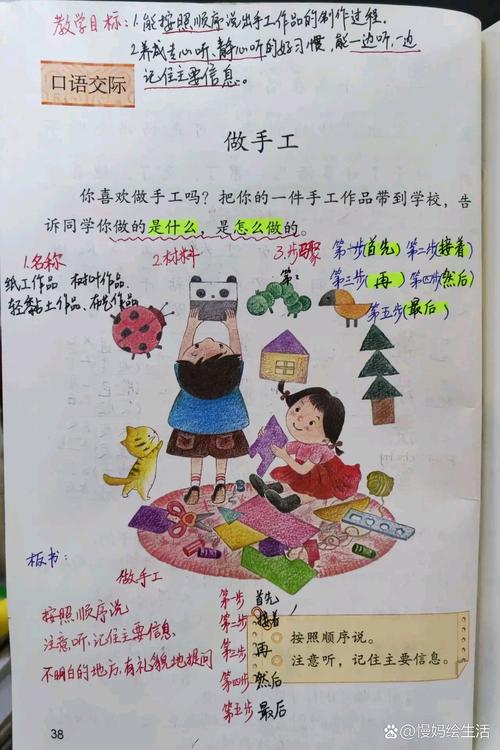 教学目标：1.能按照顺序说出手工作品的制作过程.
2.养成专心听、静心听的好习惯，能一边听，一边
记住主要信息。
口语交际
做手工
你喜欢做手工吗？把你的一件手工作品带到学校，告
诉同学你做的是什么，是怎么做的。
1.名称 2.材料 3.步骤 第一步(首先) 第二步(接着)
纸工作品 树叶作品 第三步(再) 第四步(然后)
轻黏土作品、布艺作品 第五步(最后)
板书：
做手工
按照顺序说
注意听、记住主要信息
不明白的地方,有礼貌地提问
第一步 首先
第二步 接着
第三步 再
第四步 然后
第五步 最后
按照顺序说。
注意听，记住主要信息。
38
慢妈绘生活